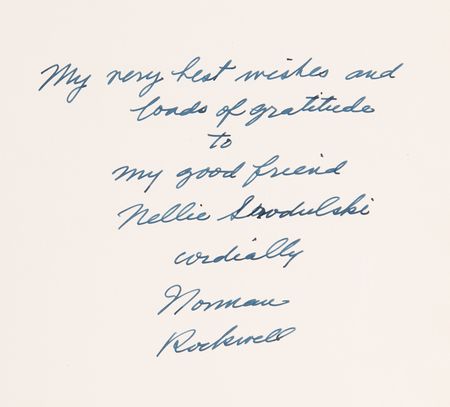 My very best wishes and
loads of gratitude
to
my good friend
Nellie
cordially
Norman
Rockwell